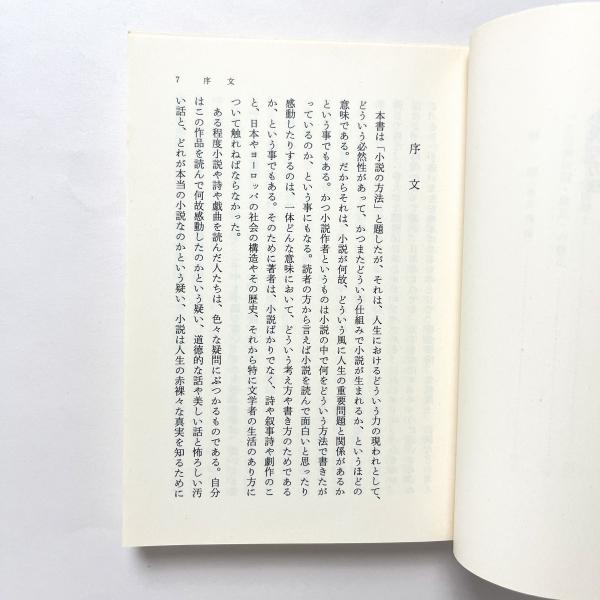 7　序　文
序　文
本書は「小説の方法」と題したが、それは、人生におけるどういう力の現われとして、
どういう必然性があって、かつまたどういう仕組みで小説が生まれるか、というほどの
意味である。だからそれは、小説が何故、どういう風に人生の重要問題と関係があるか
という事でもある。かつ小説作者というものは小説の中で何をどういう方法で書きたが
っているのか、という事にもなる。読者の方から言えば小説を読んで面白いと思ったり
感動したりするのは、一体どんな意味において、どういう考え方や書き方のためである
か、という事でもある。そのために著者は、小説ばかりでなく、詩や叙事詩や劇作のこ
と、日本やヨーロッパの社会の構造やその歴史、それから特に文学者の生活のあり方に
ついて触れねばならなかった。
ある程度小説や詩や戯曲を読んだ人たちは、色々な疑問にぶつかるものである。自分
はこの作品を読んで何故感動したのかという疑い、道徳的な話や美しい話と怖ろしい汚
い話と、どれが本当の小説なのかという疑い、小説は人生の赤裸々な真実を知るために